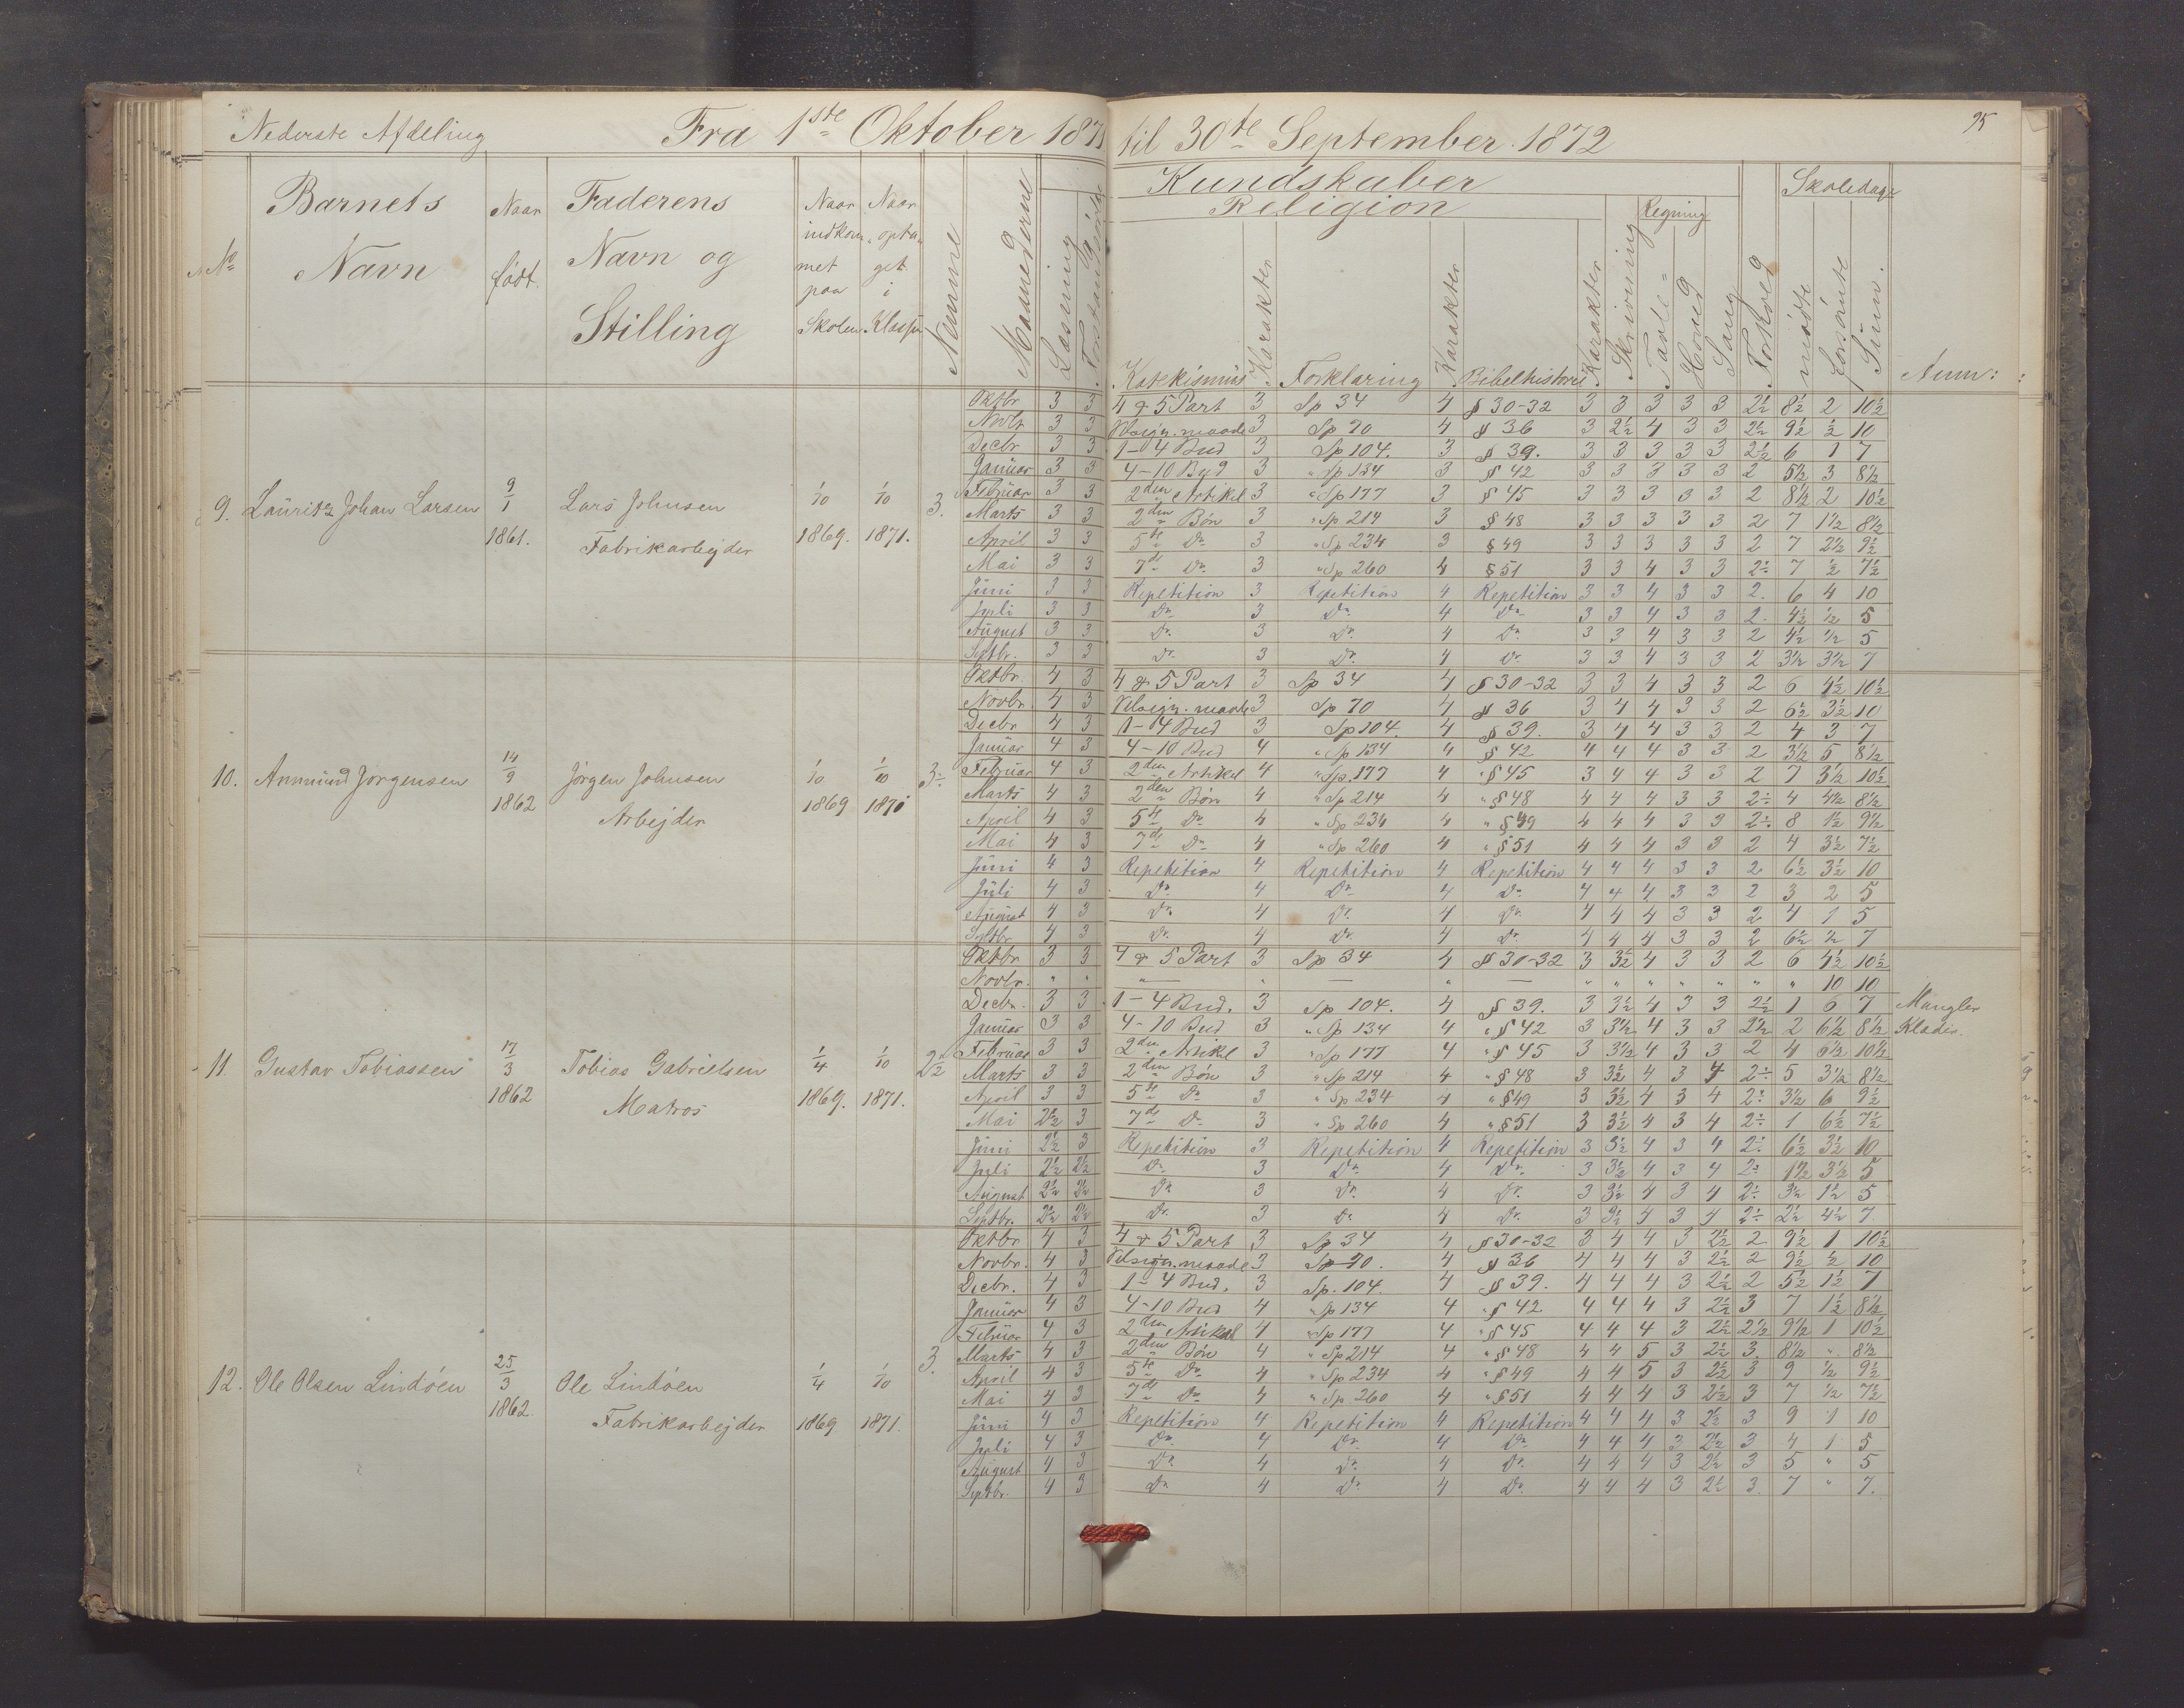 Nederste Afdeling Fra 1ste Oktober 1871 til 30te September 1872 95
Kundskaber Skoledage
Religion Regning
No Barnets Navn Naar født. Faderens Navn og Stilling Naar indkommet paa Skolen Naar optaget i Klassen Nemme Maanederne Læsning Katekismus Karakter Forklaring Karakter Bibelhistorie Karakter Skrivning Tavle= Hoved Sang Forhold mødte forsømte Sum. Anm:
9. Lauritz Johan Larsen 9/1 1861. Lars Johnsen Fabrikarbejder 1/10 1869. 1/10 1871. 3.
Oktbr 3 3 4 & 5 Part 3 Sp 34 4 § 30-32 3 3 3 3 3 2½ 8½ 2 10½
Novbr 3 3 Velsign. maade 3 Sp 70 4 § 36 3 2½ 4 3 3 2½ 9½ ½ 10
Decbr 3 3 1-4 Bud 3 Sp 104. 3 § 39. 3 3 3 3 3 2½ 6 1 7
Januar 3 3 4-10 Bud 3 " Sp 134 3 § 42 3 3 3 3 3 2 5½ 3 8½
Februar 3 3 2den Artikel 3 " Sp 177 3 § 45 3 3 3 3 3 2 8½ 2 10½
Marts 3 3 2den Bøn 3 " Sp 214 3 § 48 3 3 3 3 3 2 7 1½ 8½
April 3 3 5te Do 3 " Sp 234 3 § 49 3 3 3 3 3 2 7 2½ 9½
Mai 3 3 7de Do 3 " Sp 260 4 § 51 3 3 4 3 3 2÷ 7 ½ 7½
Juni 3 3 Repetition 3 Repetition 4 Repetition 3 3 4 3 3 2. 6 4 10
Juli 3 3 Do 3 Do 4 Do 3 3 4 3 3 2. 4½ ½ 5
August 3 3 Do 3 Do 4 Do 3 3 4 3 3 2 4½ ½ 5
Septbr. 3 3 Do 3 Do 4 Do 3 3 4 3 3 2 3½ 3½ 7
10. Anmund Jørgensen 14/9 1862 Jørgen Johnsen Arbejder 1/10 1869 1/10 1870 3÷
Oktbr. 4 3 4 & 5 Part 3 Sp 34 4 § 30-32 3 3 4 3 3 2 6 4½ 10½
Novbr. 4 3 Velsign. maade 3 Sp 70 4 § 36 3 4 4 3 3 2 6½ 3½ 10
Decbr 4 3 1-4 Bud 3 Sp 104. 4 § 39. 3 4 4 3 3 2 4 3 7
Januar 4 3 4-10 Bud 4 " Sp 134 4 § 42 4 4 4 3 3 2 3½ 5 8½
Februar 4 3 2den Artikel 4 " Sp. 177 4 " § 45 3 4 4 3 3 2 7 3½ 10½
Marts 4 3 2den Bøn 4 " Sp 214 4 " § 48 4 4 4 3 3 2÷ 4 4½ 8½
April 4 3 5te Do 4 " Sp 234 4 " § 49 4 4 4 3 3 2÷ 8 1½ 9½
Mai 4 3 7de Do 4 " Sp 260 4 " § 51 4 4 4 3 3 2 4 3½ 7½
Juni 4 3 Repetition 4 Repetition 4 Repetition 4 4 4 3 3 2 6½ 3½ 10
Juli 4 3 Do 4 Do 4 Do 4 4 4 3 3 2 3 2 5
August 4 3 Do 4 Do 4 Do 4 4 4 3 3 2 4 1 5
Septbr 4 3 Do 4 Do 4 Do 4 4 4 3 3 2 6½ ½ 7
11. Gustav Tobiassen 17/3 1862 Tobias Gabrielsen Matros 1/4 1869. 1/10 1871. 2½
Oktbr 3 3 4 & 5 Part 3 Sp 34 4 § 30-32 3 3½ 4 3 3 2 6 4½ 10½
Novbr. " " " — " — " — " " " " " " " 10 10
Decbr. 3 3 1-4 Bud. 3 Sp 104. 4 § 39. 3 3½ 4 3 3 2½ 1 6 7 Mangler
Januar 3 3 4-10 Bud 3 " Sp 134 4 " § 42 3 3½ 4 3 3 2½ 2 6½ 8½ Klæder.
Februar 3 3 2den Artikel 3 " Sp 177 4 " § 45 3 3½ 4 3 3 2 4 6½ 10½
Marts 3 3 2den Bøn 3 " Sp 214 4 " § 48 3 3½ 4 3 4 2÷ 5 3½ 8½
April 3 3 5te Do 3 " Sp 234 4 " § 49 3 3½ 4 3 4 2÷ 3½ 6 9½
Mai 2½ 3 7de Do 3 " Sp 260 4 " § 51 3 3½ 4 3 4 2÷ 1 6½ 7½
Juni 2½ 3 Repetition 3 Repetition 4 Repetition 3 3½ 4 3 4 2÷ 6½ 3½ 10
Juli 2½ 2½ Do 3 Do 4 Do 3 3½ 4 3 4 2÷ 1½ 3½ 5
August 2½ 2½ Do 3 Do 4 Do 3 3½ 4 3 4 2÷ 3½ 1½ 5
Septbr. 2½ 2½ Do 3 Do 4 Do 3 3½ 4 3 4 2÷ 2½ 4½ 7
12. Ole Olsen Lindøen 25/3 1862. Ole Lindøen Fabrikarbejder 1/4 1869 1/10 1871. 3.
Oktbr 4 3 4 & 5 Part 3 Sp 34 4 § 30-32 3 4 4 3 2½ 2 9½ 1 10½
Novbr. 4 3 Velsign. maade 3 Sp 70. 4 § 36 4 4 4 3 2½ 2 9½ ½ 10
Decbr. 4 3 1-4 Bud. 3 Sp. 104. 4 § 39. 4 4 4 3 2½ 2 5½ 1½ 7
Januar 4 3 4-10 Bud 4 " Sp 134 4 " § 42 4 4 4 3 2½ 3 7 1½ 8½
Februar 4 3 2den Artikel 4 " Sp 177 4 " § 45 4 4 4 3 2½ 2½ 9½ 1 10½
Marts 4 3 2den Bøn 4 " Sp 214 4 " § 48 4 4 5 3 2½ 3 8½ " 8½
April 4 3 5te Do 4 " Sp 234 4 " § 49 4 4 5 3 2½ 3 9 ½ 9½
Mai 4 3 7de Do 4 " Sp 260 4 " § 51 4 4 4 3 2½ 3 7 ½ 7½
Juni 4 3 Repetition 4 Repetition 4 Repetition 4 4 4 3 2½ 3 9 1 10
Juli 4 3 Do 4 Do 4 Do 4 4 4 3 2½ 3 4 1 5
August 4 3 Do 4 Do 4 Do 4 4 4 3 2½ 3 5 " 5
Septbr. 4 3 Do 4 Do 4 Do 4 4 4 3 2½ 3. 7 " 7.